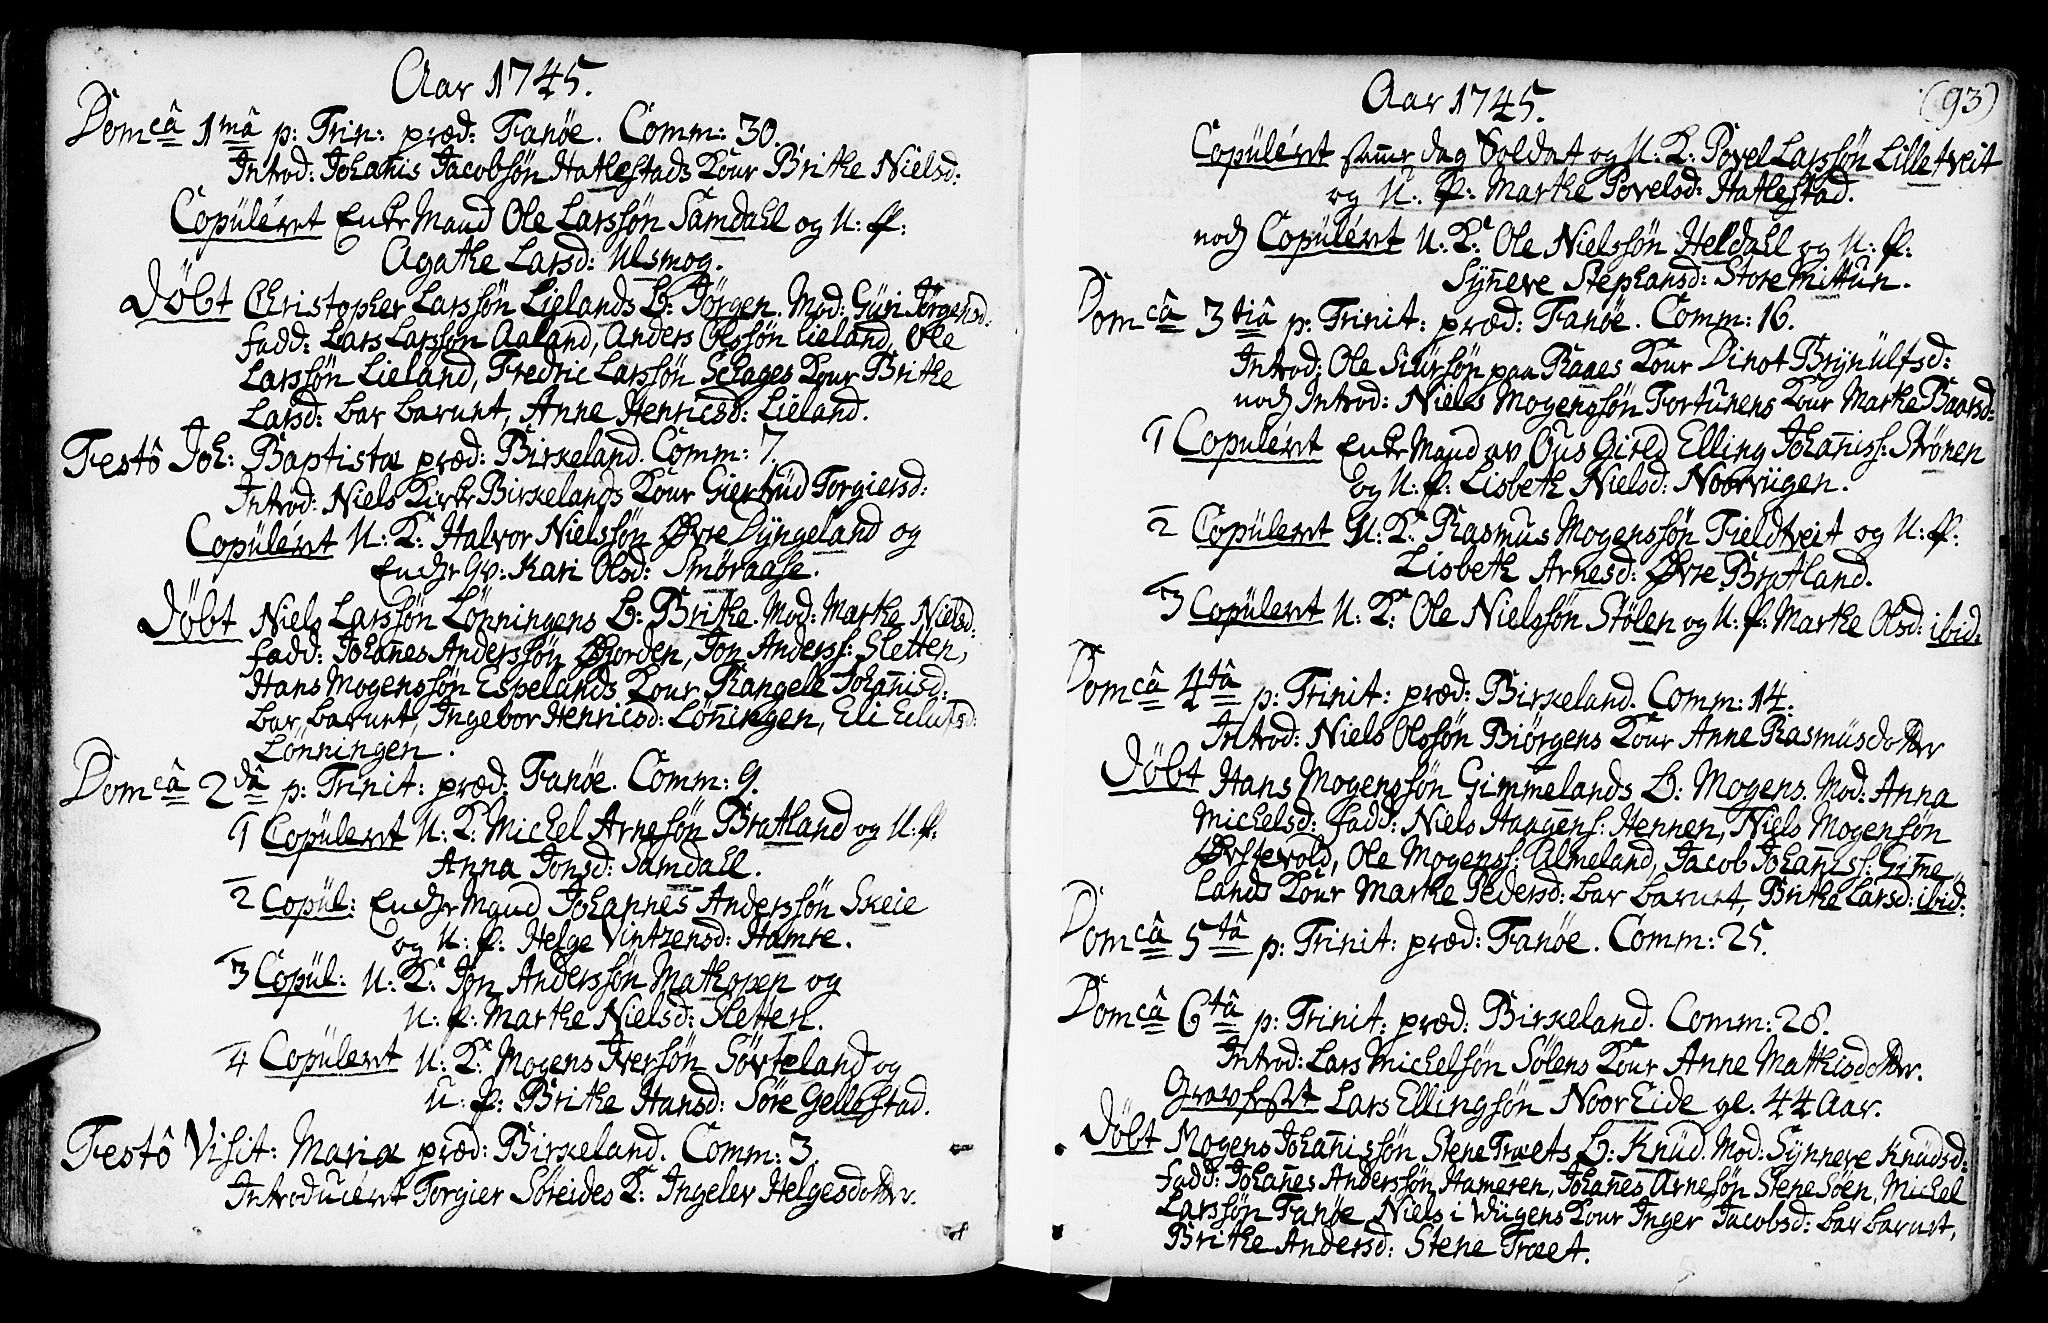 Aar 1745.
Domcâ 1mâ p: Trin: præd: Fanöe. Comm: 30.
Introd: Johanis Jacobsön Hatlestads Kour Brithe Nielsd:
Copülérrt EnkeMand Ole Larssön Samdahl og U: ff:
Agathe Larsd: Ulsmog.
Döbt Christopher Larssön Lielands B: Jörgen. Mod: Güri Jörgensd:
Fadd: Lars Larssön Aaland, Anders Olssön Lieland, Ole
Larssön Lieland, Fredric Larssön Schages Kour Brithe
Larsd: bar barnet, Anne Henricsd: Lieland.
Festô Joh: Baptistæ præd: Birkeland. Comm: 7.
Introd: Niels KirkeBirkelands Kour Giertrüd Torgiersd:
Copülérrt U: K: Halvor Nielssön Øvre Dyngeland og
Enche Qv: Kari Olsd: Smöraase.
Döbt Niels Larssön Lönningens B: Brithe. Mod: Marthe Nielsd:
Fadd: Johanes Anderssön Øjorden, Jon Anderss: Sletten,
Hans Mogenssön Espelands Kour Rangele Johanisd:
bar barnet, Ingebor Henricsd: Löningen, Eli Eilufsd:
Lönningen.
Domcâ 2dâ p: Trinit: præd: Fanöe. Comm: 9.
1 Copülerrt U: K: Michel Arnesön Bratland og U: ff:
Anna Jonsd: Samdahl.
2 Copül: EncheMand Johannes Anderssön Skeie
og U: ff: Helge Vintzensd: Hamre.
3 Copül: U: K: Jon Anderssön Mathopen og
U: ff: Marthe Nielsd: Sletten.
4 Copülerrt U: K: Mogens Iversön Sörteland og
U: ff: Brithe Hansd: Söre Gellestad.
Festô Visit: Mariæ præd: Birkeland. Comm: 3.
Introducerrt Torgier Söreides K: Ingelev Helgesdotter.
Aar 1745.
(93)
Copülérrt samme dag Soldat og U: K: Povel Larssön Lilletveit
og U: ff: Marthe Povelsd: Hatlestad.
noch Copülérrt U: K: Ole Nielssön Heldahl og U: ff:
Synneve Stephansd: Store Mittun.
Domcâ 3tiâ p: Trinit: præd: Fanöe. Comm: 16.
Introd: Ole Siürsön paa Raaes Kour Dinot Brynülfsd:
noch Introd: Niels Mogenssön Fortünens Kour Marthe Baarsd:
1 Copülérrt EnkeMand av Ous Gield Elling Johaniss: Strönen
og U: ff: Lisbeth Nielsd: Noorvügen.
2 Copülerrt U: K: Rasmus Mogenssön Fieldtveit og U: ff:
Lisbeth Arnesd: Øvre Bratland.
3 Copülerrt U: K: Ole Nielssön Stölen og U: ff: Marthe Olsd: ibid:
Domcâ 4tâ p: Trinit: præd: Birkeland. Comm: 14.
Introd: Niels Olssön Biörgens Kour Anne Rasmüsdotter
Döbt Hans Mogenssön Gimmelands B: Mogens. Mod: Anna
Michelsd: Fadd: Niels Haagens: Hennen, Niels Mogensön
Øvstevold, Ole Mogenss: Almeland, Jacob Johaniss: Gime
lands Kour Marthe Pedersd: bar barnet, Brithe Larsd: ibid:
Domcâ 5tâ p: Trinit: præd: Fanöe. Comm: 25.
Domcâ 6tâ p: Trinit: præd: Birkeland. Comm: 28.
Introd: Lars Michelsön Sölens Kour Anne Mathisdotter.
Gravfest Lars Ellingsön NoorEide gl. 44 Aar.
Döbt Mogens Johanissön SteneTræets B: Knüd. Mod: Synneve Knüdsd:
Fadd: Johanes Anderssön Hameren, Johanes Arnesön SteneSöen, Michel
Larssön Fanöe, Niels i Wügens Kour Inger Jacobsd: bar barnet,
Brithe Andersd: Stene Træet.